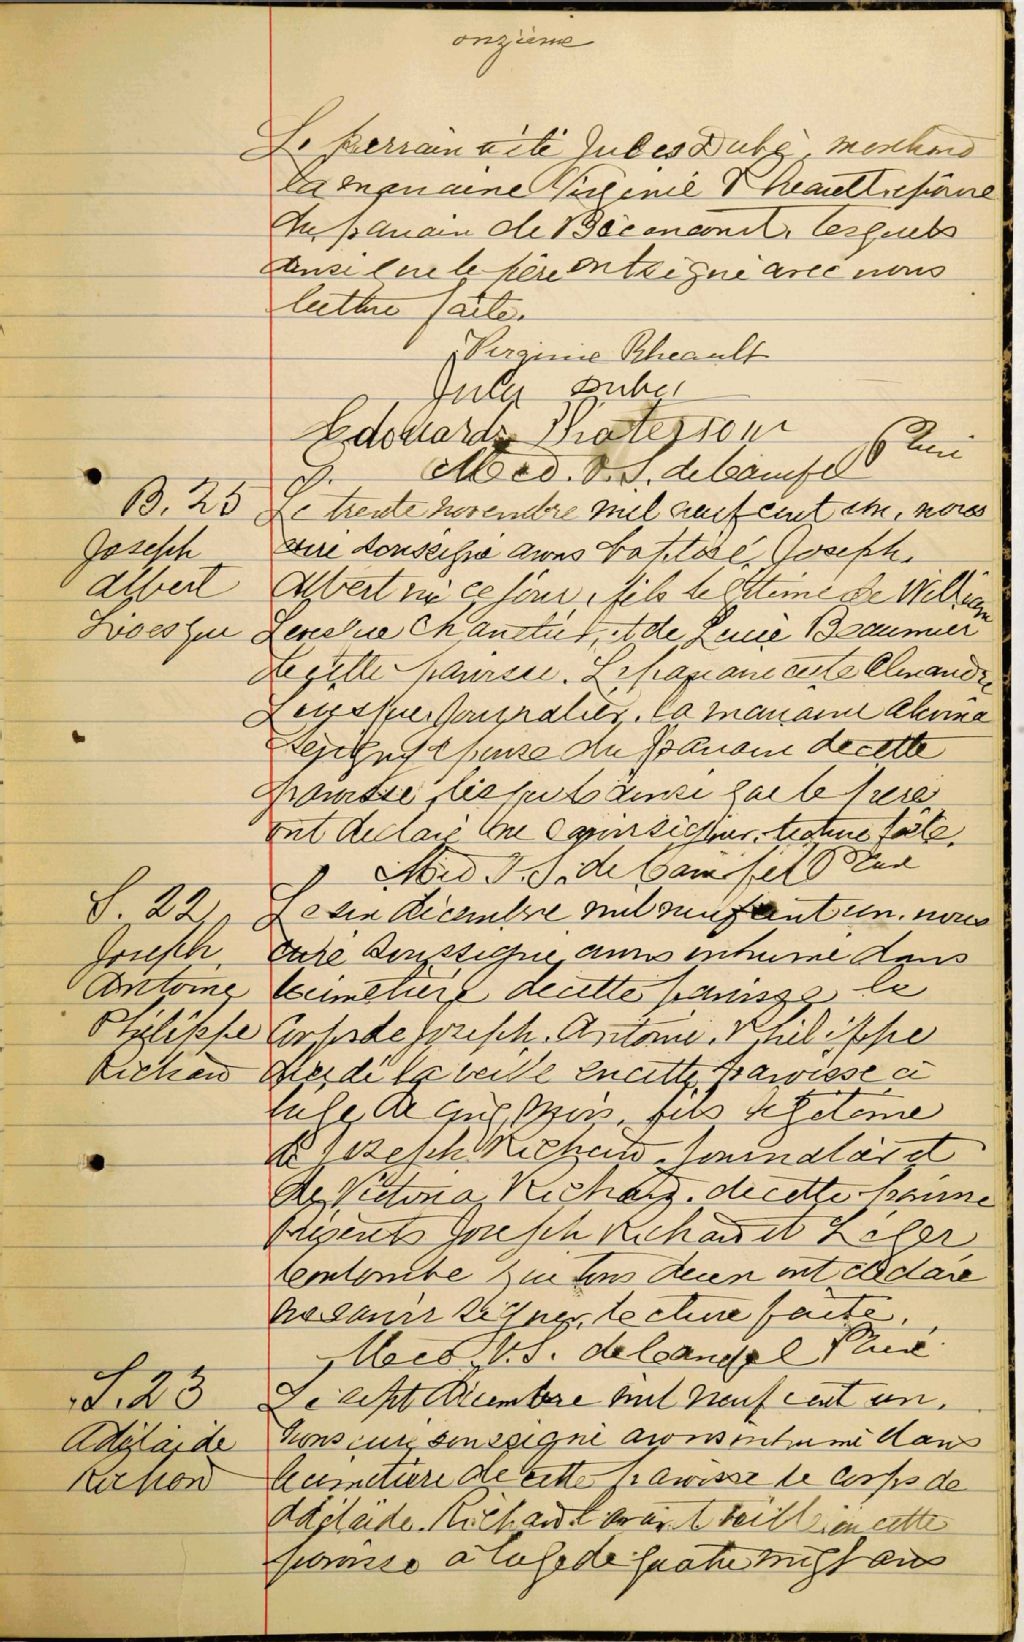 onzième
Le parrain a été Jules Dubé, marchand
la marraine Virginie Rheault épouse
du parrain de Bécancourt, lesquels
ainsi que le père ont signé avec nous
lecture faite.
Virginie Rheault
Jules Dubé
Edouard Paterson
Med. V. S. de Caufel Ptre Curé
B. 25
Joseph
Albert
Livesque
Le trente novembre mil neuf cent un, nous
curé soussigné avons baptisé Joseph,
Albert né ce jour, fils légitime de William
Levesque et de Lucie Beaumier
de cette paroisse. Le parrain a été Alexandre
Levesque, Journalier, la marraine Alvina
épouse du parrain de cette
paroisse lesquels ainsi que le père
ont déclaré ne savoir signer, lecture faite.
Med V. S. de Caufel Ptre Curé
S. 22
Joseph
Antoine
Philippe
Richard
Le six décembre mil neuf cent un, nous
curé soussigné avons inhumé dans
le cimetière de cette paroisse le
corps de Joseph, Antoine, Philippe
décédé la veille en cette paroisse à
l'age de cinq mois, fils légitime
de Joseph Richard, journalier et
de Victoria Richard, de cette paroisse
présents Joseph Richard et Léger
Lacombe qui tous deux ont déclaré
ne savoir signer, lecture faite.
Med V. S. de Caufel Ptre Curé
S. 23
Adélaide
Richard
Le sept décembre mil neuf cent un,
nous curé soussigné avons inhumé dans
le cimetière de cette paroisse le corps de
Adélaide Richard l'avant veille en cette
paroisse à l'age de quatre vingt ans